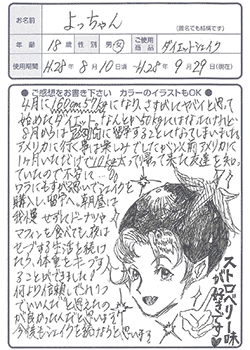 お名前
よっちゃん
(匿名でも結構です)
年齢 18歳 性別 男・女 ご使用商品 ダイエットシェイク
使用期間 H.28年8月10日頃~H.28年9月29日(現在)
●ご感想をお書き下さい カラーのイラストもOK●
4月に160cm57kgになり、さすがにヤバイと思って
始めたダイエット。なんとか
8月からは 留学することとなってしまいました。
アメリカに行く事は楽しみでしたが
1ヶ月いただけで10kg太って帰って来た友達を知っ
ていたので不安に…。
シェイクを
購入し留学へ。朝昼は
我慢せずドーナツや
マフィンを食べても、夜は
セーブする生活を続け
たら、体重をキープす
ることができました!
何より信頼してこれ1つ
でいいんだと思えたの
が良かったんだと思います。
今後もシェイクを
ストロベリー味
が好きです